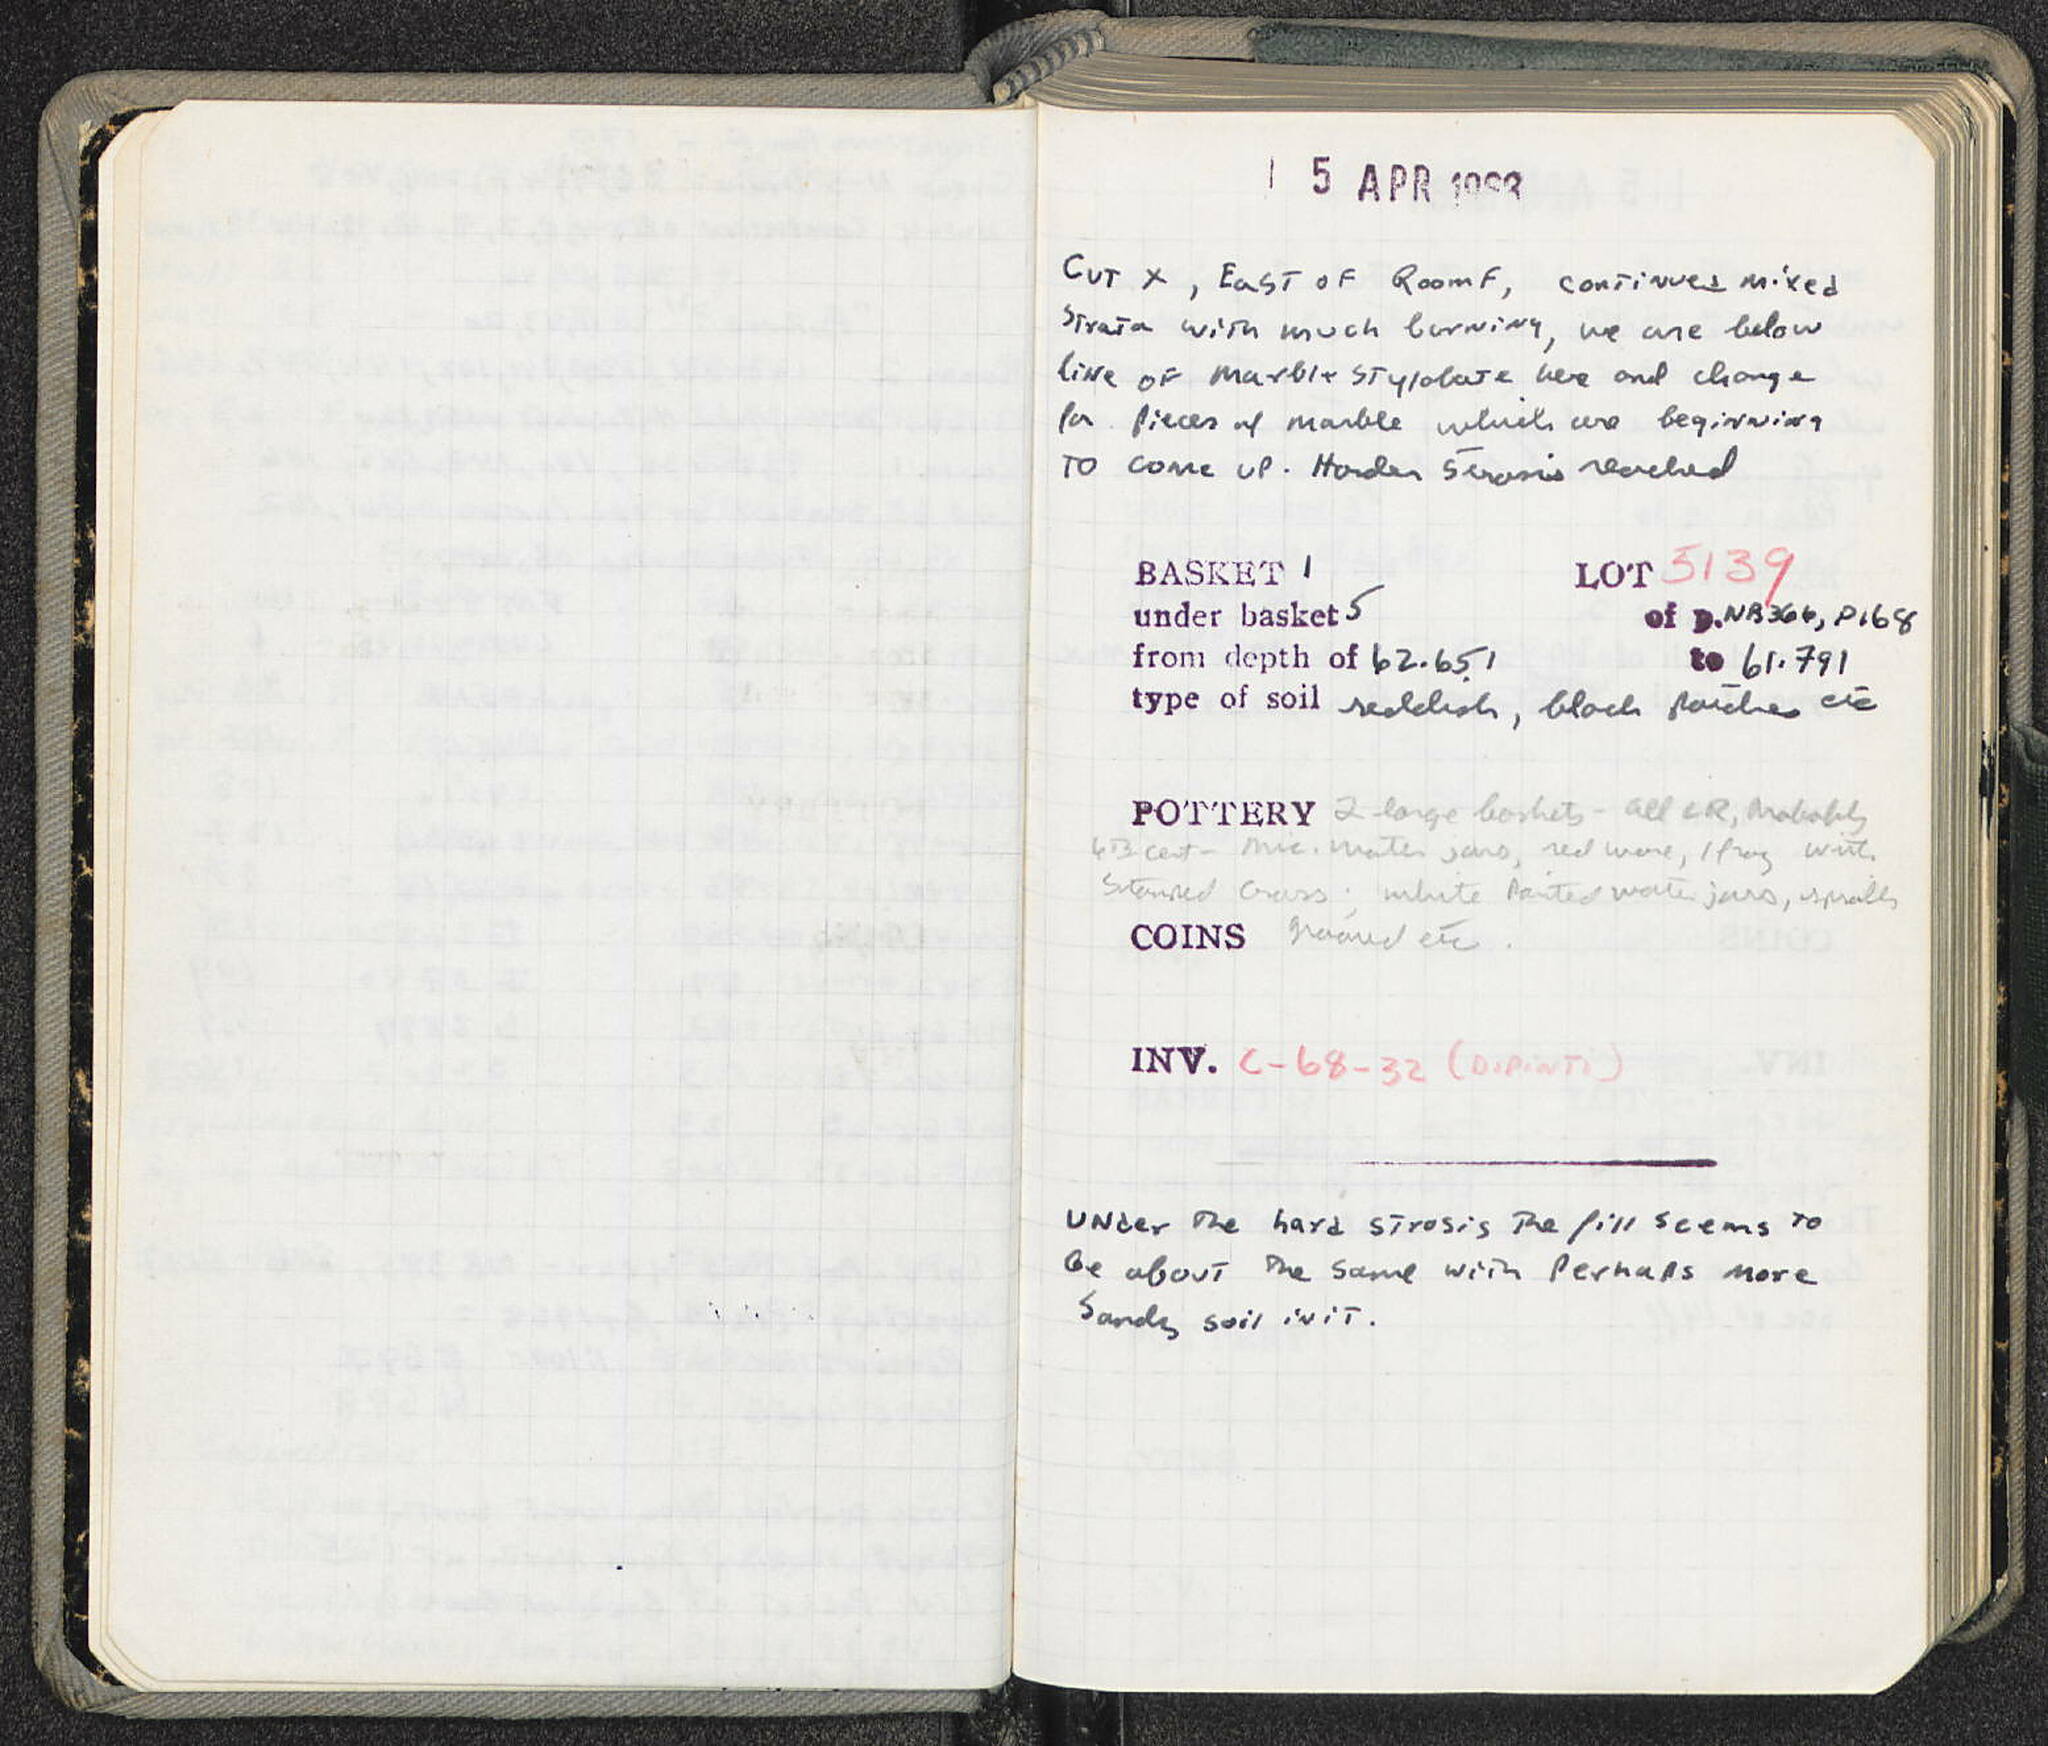 15 APR 1968
Cut X, East of Room F, continued mixed
strata with much burning, we are below
line of marble stylobate here and change
for pieces of marble which are beginning
to come up. Harder strosis reached
BASKET 1 LOT 5139
under basket 5 of p. NB366, P168
from depth of 62.651 to 61.791
type of soil reddish, black patches etc
POTTERY 2 large baskets - all LR, Probably
6th cent - Mic. water jars, red ware, 1 frag with
Stamped Cross; white Painted water jars, spirally
grooved etc.
COINS
INV. C-68-32 (DIPINTI)
Under the hard strosis the fill seems to
be about the same with Perhaps more
Sandy soil in it.